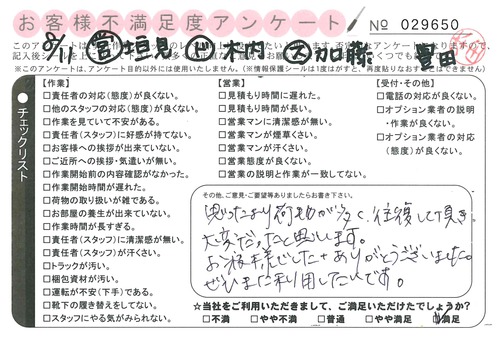 お客様不満足度アンケート
№ 029650
8/11 営 垣見 ド 木内 ス 加藤 豊田
※このアンケートは、アンケート目的以外には使用いたしません。（※情報保護シールは1度はがすと、再度貼りなおすことはできません）
チェックリスト
【作業】
□責任者の対応（態度）が良くない。
□他のスタッフの対応（態度）が良くない。
□作業を見ていて不安がある。
□責任者（スタッフ）に好感が持てない。
□お客様への挨拶が出来ていない。
□ご近所への挨拶・気遣いが無い。
□作業開始前の内容確認がなかった。
□作業開始時間が遅れた。
□荷物の取り扱いが雑である。
□お部屋の養生が出来ていない。
□作業時間が長すぎる。
□責任者（スタッフ）に清潔感が無い。
□責任者（スタッフ）が汗くさい。
□トラックが汚い。
□梱包資材が汚い。
□運転が不安（下手）である。
□靴下の履き替えをしてない。
□スタッフにやる気がみられない。
【営業】
□見積もり時間に遅れた。
□見積もり時間が長い。
□営業マンに清潔感が無い。
□営業マンが煙草くさい。
□営業マンが汗くさい。
□営業態度が良くない。
□営業の説明と作業が一致してない。
【受付・その他】
□電話の対応が良くない。
□オプション業者の説明
・作業が良くない。
□オプション業者の対応
（態度）が良くない。
その他、ご意見・ご要望等ありましたらお書き下さい。
思ったより荷物が多く、往復して頂き
大変だったと思います。
お疲れ様でした。ありがとうございました。
ぜひまた利用したいです。
☆当社をご利用いただきまして、ご満足いただけたでしょうか？
□不満 □やや不満 □普通 □やや満足 ☑満足